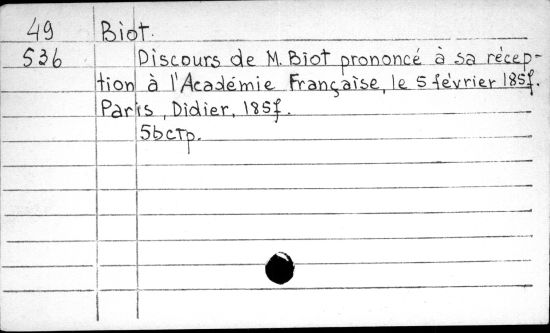 49 Biot.
536 Discours de M. Biot prononcé à sa récep-
tion à l'Académie Française, le 5 février 1857.
Paris, Didier, 1857.
56стр.